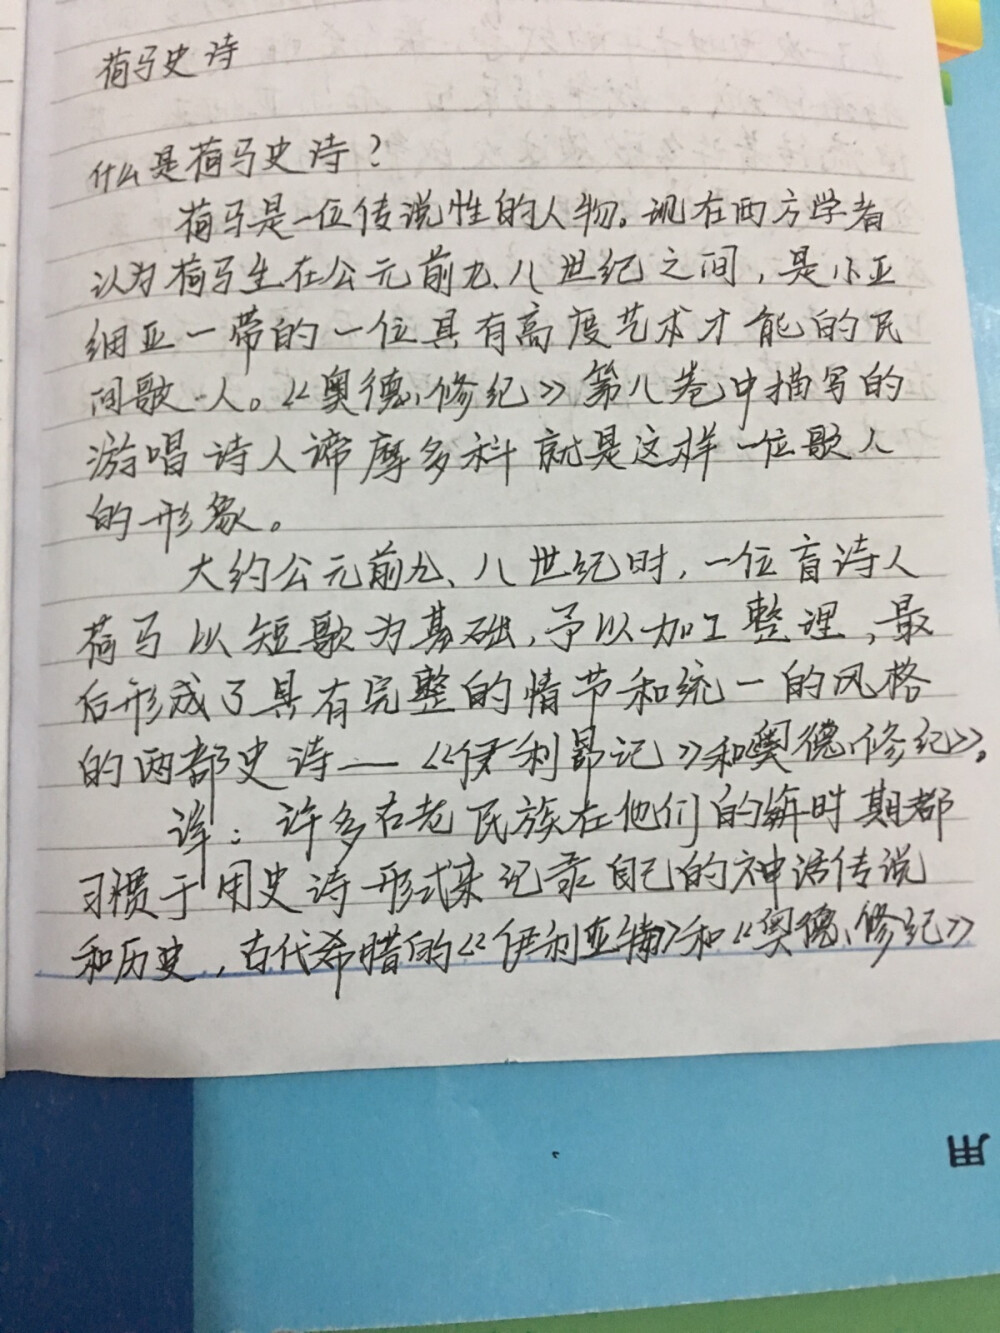 荷马史诗
什么是荷马史诗？
荷马是一位传说性的人物。现在西方学者
认为荷马生在公元前九、八世纪之间，是小亚
细亚一带的一位具有高度艺术才能的民
间歌人。《奥德修纪》第八卷中描写的
游唱诗人谛摩多科就是这样一位歌人
的形象。
大约公元前九、八世纪时，一位盲诗人
荷马以短歌为基础，予以加工整理，最
后形成了具有完整的情节和统一的风格
的两部史诗——《伊利昂记》和《奥德修纪》。
详：许多古老民族在他们的早时期都
习惯于用史诗形式来记录自己的神话传说
和历史，古代希腊的《伊利亚特》和《奥德修纪》
用